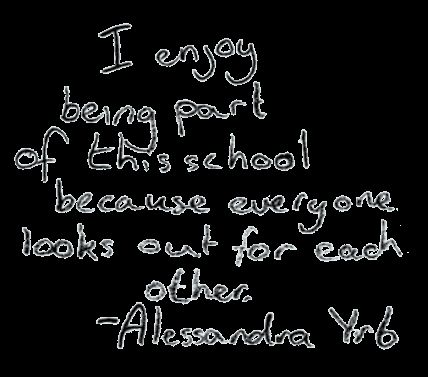 I enjoy
being part
of this school
because everyone
looks out for each
other.
-Alessandra Yr6